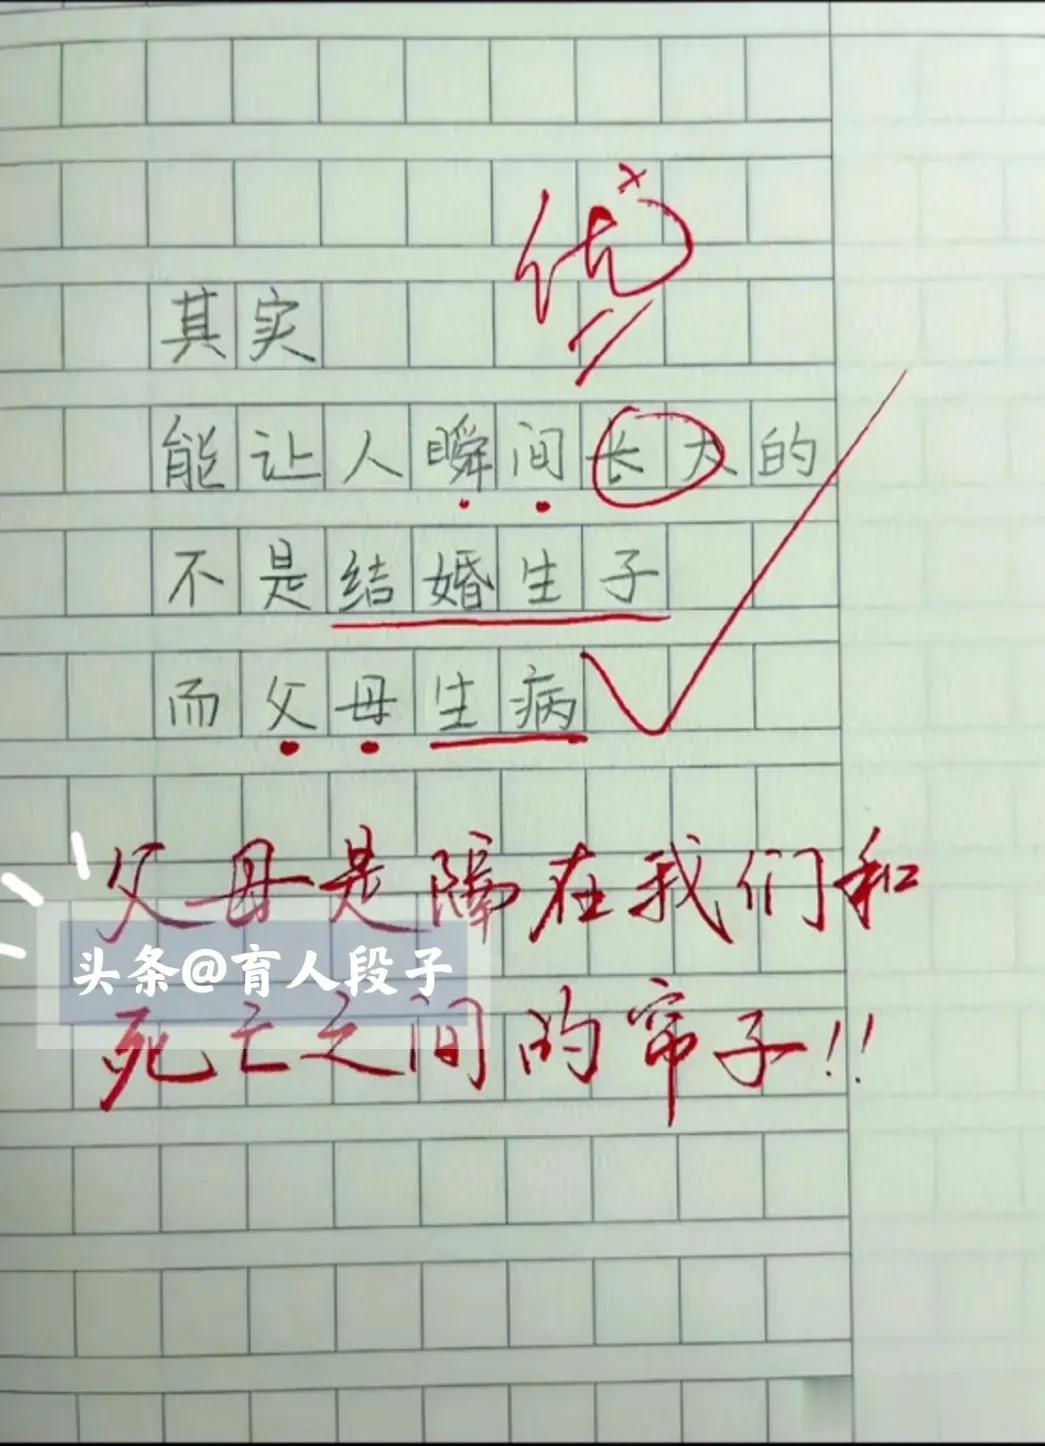 优
其实
能让人瞬间长大的
不是结婚生子
而父母生病
父母是隔在我们和
头条@育人段子
死亡之间的帘子!!